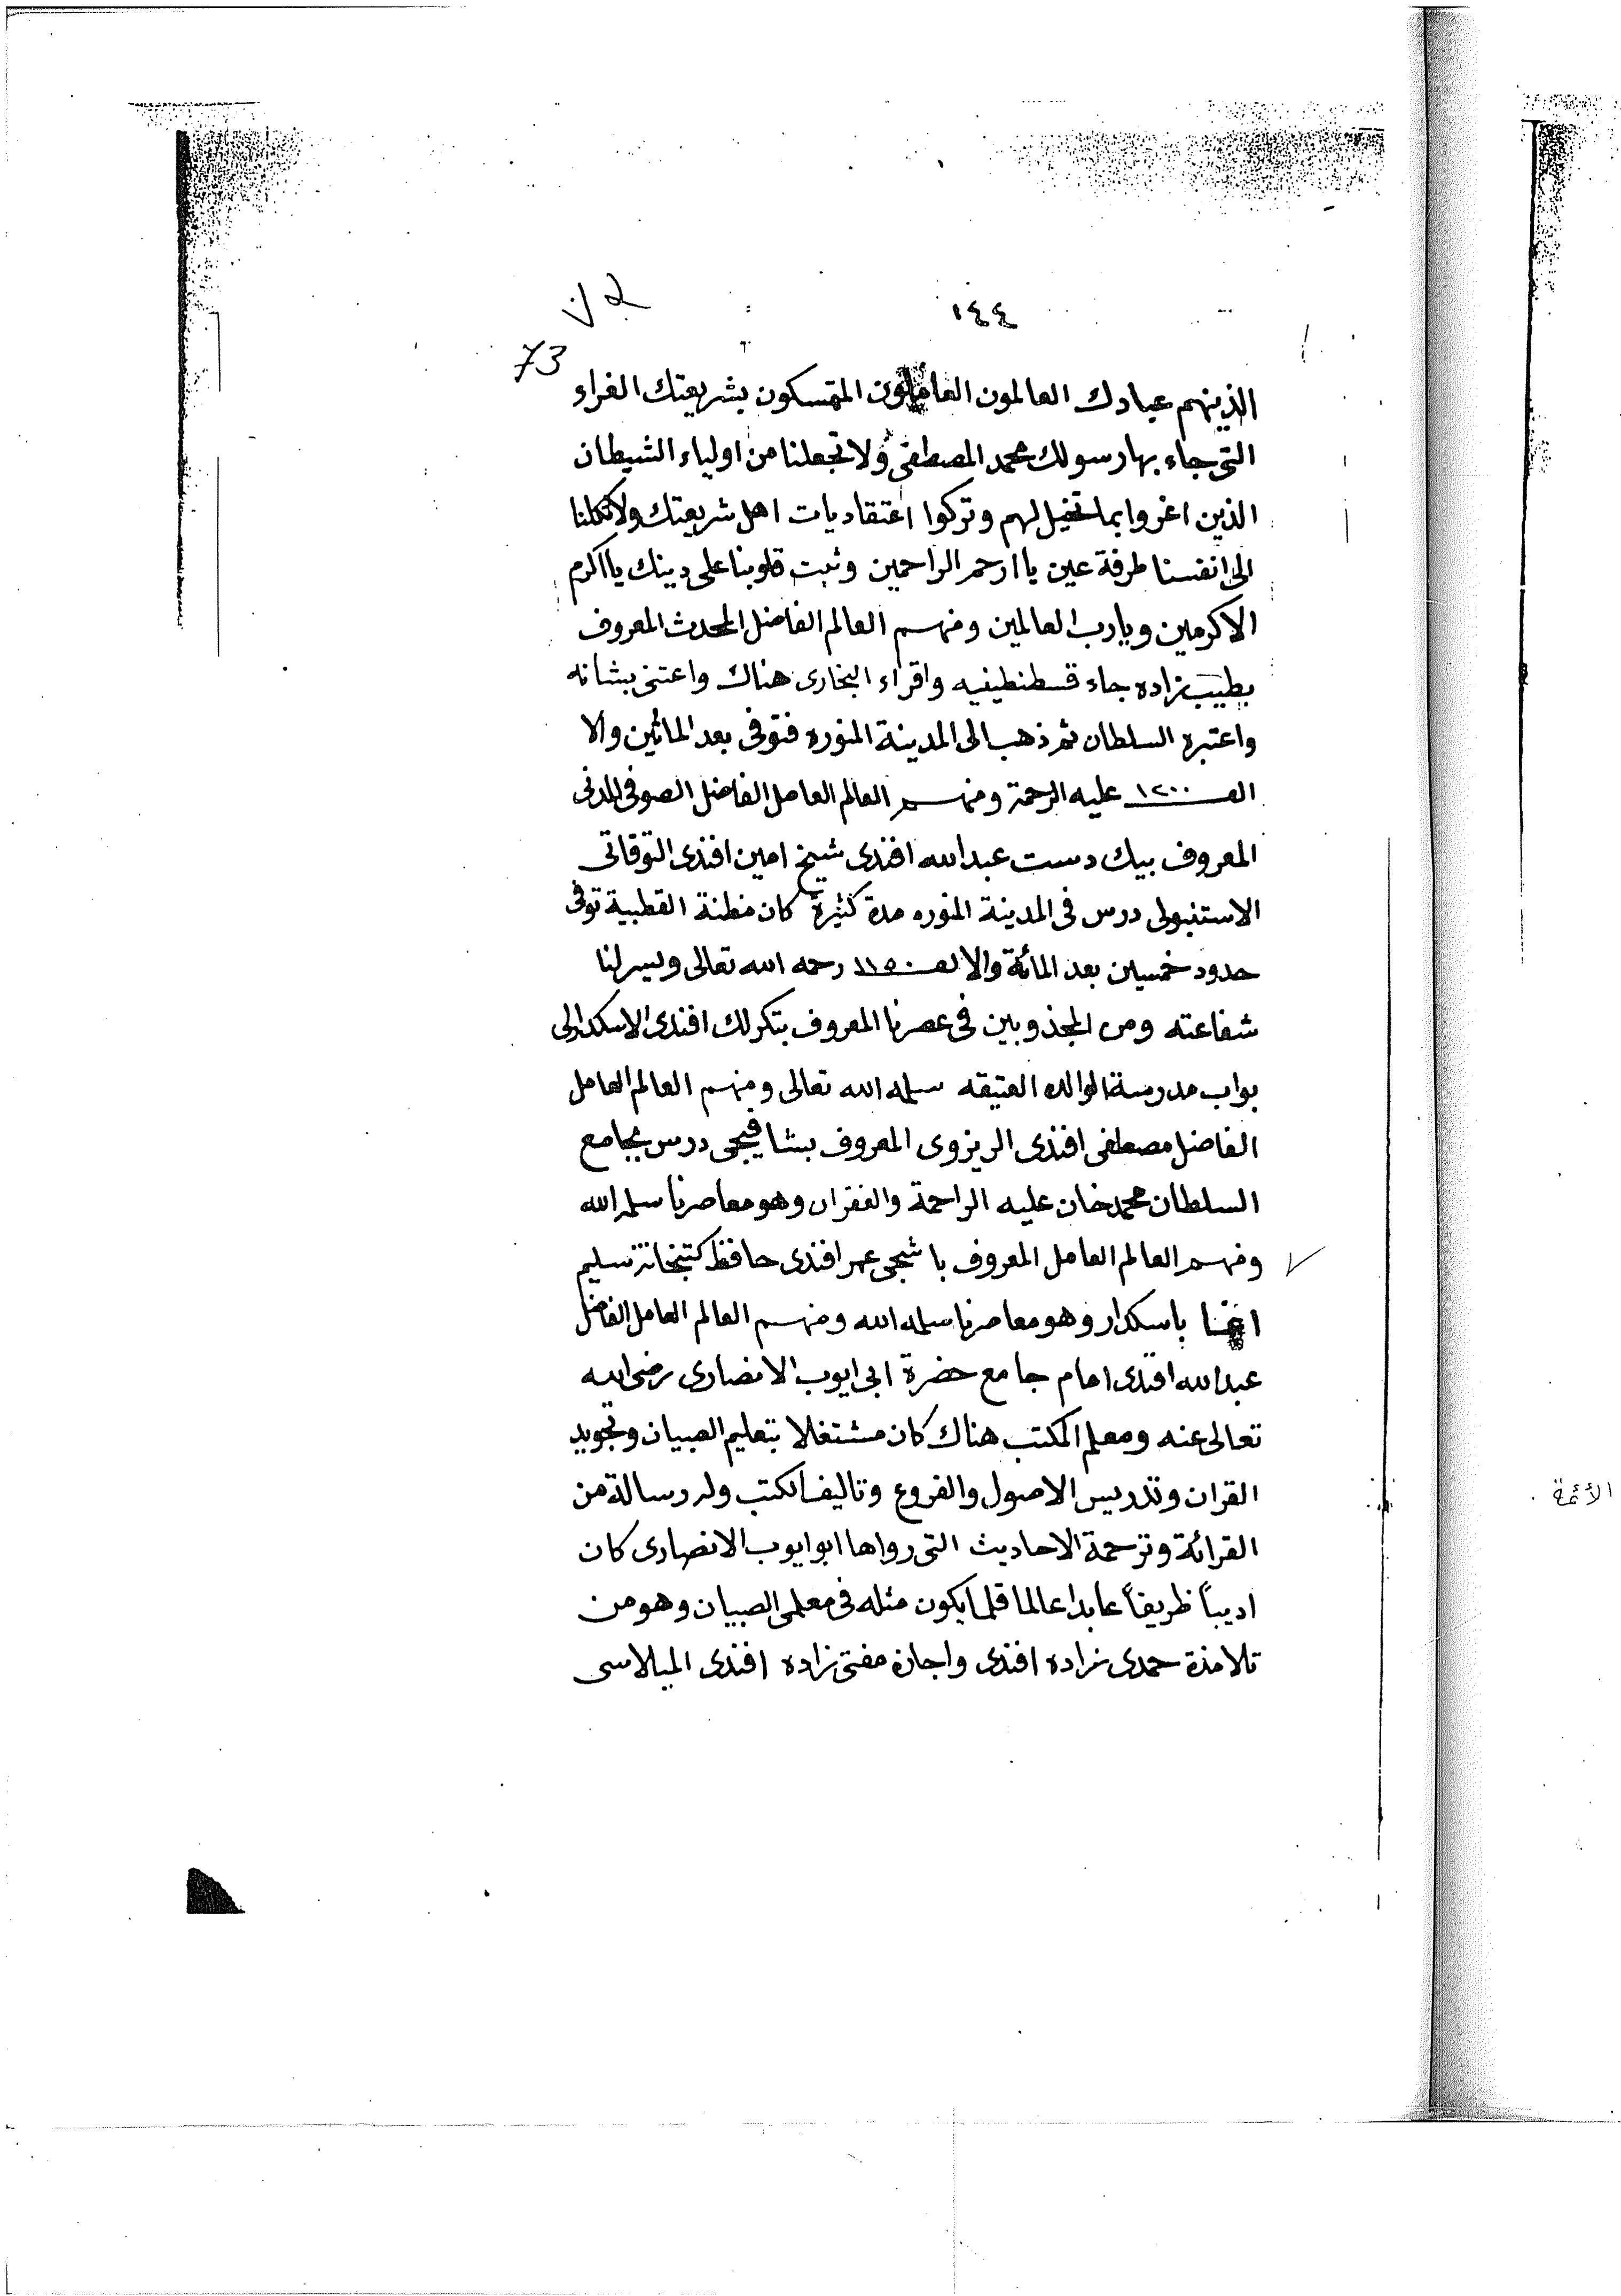 ١٤٤
73
الذينهم عبادك العالمون العاملون المتمسكون بشريعتك الغراء
التى جاء بها رسولك محمد المصطفى ولا تجعلنا من اولياء الشيطان
الذين اغروا بما تخيل لهم وتركوا اعتقاديات اهل شريعتك ولا تكلنا
الى انفسنا طرفة عين يا ارحم الراحمين وثبت قلوبنا على دينك يا اكرم
الاكرمين ويارب العالمين ومنهم العالم الفاضل المحدث المعروف
بطبيب زاده جاء قسطنطينيه واقراء البخارى هناك واعتنى بشانه
واعتبره السلطان ثم ذهب الى المدينة المنوره فتوفى بعد المائين والا
الف ١٢٠٠ عليه الرحمة ومنهم العالم العامل الفاضل الصوفى المدنى
المعروف بيك دست عبدالله افندى شيخ امين افندى التوقاتى
الاستنبولى درس فى المدينة المنوره مدة كثيرة كان مظنة القطبية توفى
حدود خمسين بعد المائة والالف ١١٥٠ رحمه الله تعالى ويسر لنا
شفاعته ومن المجذوبين فى عصرنا المعروف بتكرلك افندى الاسكدارلى
بواب مدرسة الوالده العتيقه سلمه الله تعالى ومنهم العالم العامل
الفاضل مصطفى افندى الريزوى المعروف بشاقيجى درس بجامع
السلطان محمد خان عليه الراحمة والغفران وهو معاصرنا سلمه الله
ومنهم العالم العامل المعروف باشجى عمر افندى حافظ كتبخانه سليم
اغا باسكدار وهو معاصرنا سلمه الله ومنهم العالم العامل الفاضل
عبدالله افندى امام جامع حضرة ابى ايوب الانصارى رضى الله
تعالى عنه ومعلم المكتب هناك كان مشتغلا بتعليم الصبيان وتجويد
القران وتدريس الاصول والفروع وتاليف الكتب وله رسالة من
القرائة وترجمة الاحاديث التى رواها ابو ايوب الانصارى كان
اديباً ظريفاً عابدا عالما قلما يكون مثله فى معلمى الصبيان وهو من
تلامذة حمدى زاده افندى واجازه مفتى زاده افندى الميلاسى
الأئمة